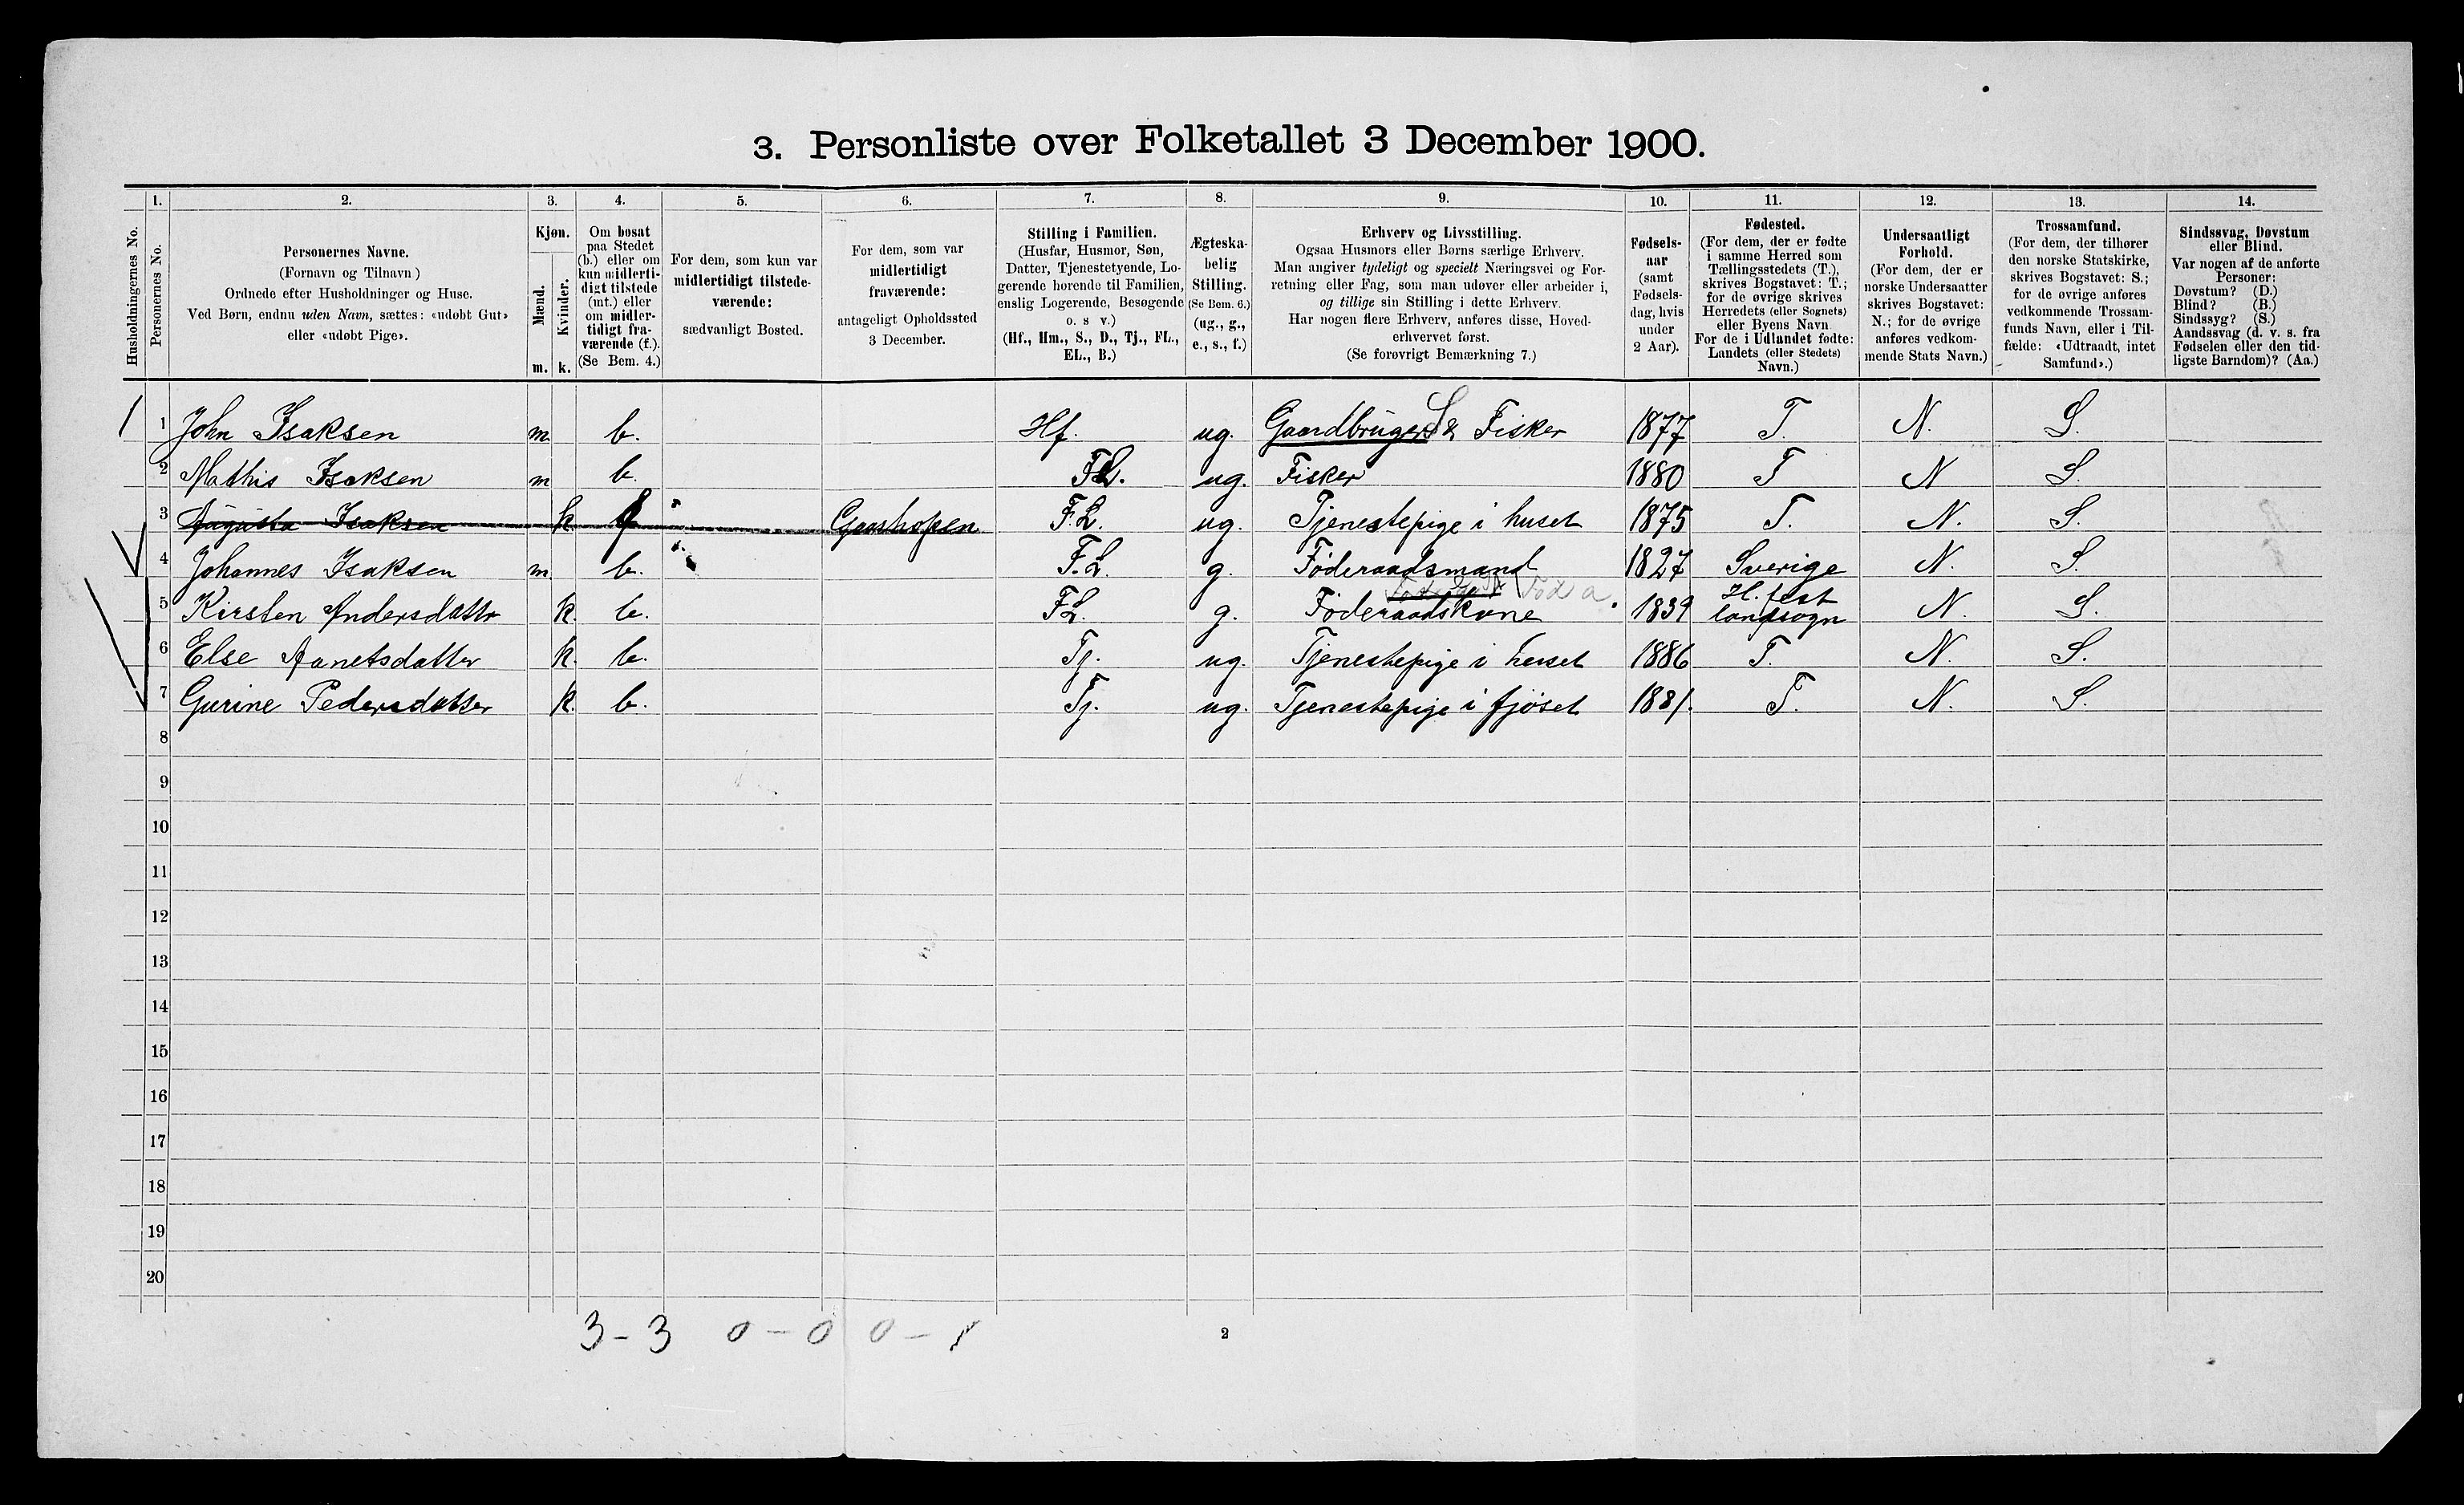 3. Personliste over Folketallet 3 December 1900.
1. 2. 3. 4. 5. 6. 7. 8. 9. 10. 11. 12. 13. 14.
Husholdningernes No.
Personernes No.
Personernes Navne.
(Fornavn og Tilnavn)
Ordnede efter Husholdninger og Huse.
Ved Børn, endnu uden Navn, sættes: «udøbt Gut»
eller «udøbt Pige».
Kjøn.
Mænd.
Kvinder.
m. k.
Om bosat
paa Stedet
(b.) eller om
kun midlerti-
digt tilstede
(mt.) eller
om midler-
tidigt fra-
værende (f.).
(Se Bem. 4.)
For dem, som kun var
midlertidigt tilstede-
værende:
sædvanligt Bosted.
For dem, som var
midlertidigt
fraværende:
antageligt Opholdssted
3 December.
Stilling i Familien.
(Husfar, Husmor, Søn,
Datter, Tjenestetyende, Lo-
gerende hørende til Familien,
enslig Logerende, Besøgende
o. s v.)
(Hf., Hm., S., D., Tj., FL.,
EL., B.)
Ægteska-
belig
Stilling.
(Se Bem. 6.)
(ug., g.,
e., s., f.)
Erhverv og Livsstilling.
Ogsaa Husmors eller Børns særlige Erhverv.
Man angiver tydeligt og specielt Næringsvei og For-
retning eller Fag, som man udøver eller arbeider i,
og tillige sin Stilling i dette Erhverv.
Har nogen flere Erhverv, anføres disse, Hoved-
erhvervet først.
(Se forøvrigt Bemærkning 7.)
Fødsels-
aar
(samt
Fødsels-
dag, hvis
under
2 Aar).
Fødested.
(For dem, der er fødte
i samme Herred som
Tællingsstedets (T.),
skrives Bogstavet: T.;
for de øvrige skrives
Herredets (eller Sognets)
eller Byens Navn
For de i Udlandet fødte:
Landets (eller Stedets)
Navn.)
Undersaatligt
Forhold.
(For dem, der er
norske Undersaatter
skrives Bogstavet:
N.; for de øvrige
anføres vedkom-
mende Stats Navn.)
Trossamfund.
(For dem, der tilhører
den norske Statskirke,
skrives Bogstavet: S.;
for de øvrige anføres
vedkommende Trossam-
funds Navn, eller i Til-
fælde: «Udtraadt, intet
Samfund».)
Sindssvag, Døvstum
eller Blind.
Var nogen af de anførte
Personer:
Døvstum? (D.)
Blind? (B.)
Sindssyg? (S.)
Aandssvag (d. v. s. fra
Fødselen eller den tid-
ligste Barndom)? (Aa.)
1 1 John Isaksen m. b. Hf. ug. Gaardbruger S & Fisker 1877 T. N. S.
2 Mathis Isaksen m b. FL. ug. Fisker 1880 T N S.
3 Augusta Isaksen k. f Gaashopen F.L. ug. Tjenestepige i huset 1875 T. N. S.
4 Johannes Isaksen m. b. F.L. g. Föderaadsmand 1827 Sverige N. S.
5 Kirsten Andersdatter k. b. FL. g. Föderaadskone 1839 H.fest landsogn N. S.
6 Else Aanetsdatter k. b. Tj. ug. Tjenestepige i huset 1886 T. N. S.
7 Gurine Pedersdatter k. b. Tj. ug. Tjenestepige i fjöset 1881. T. N. S.
8
9
10
11
12
13
14
15
16
17
18
19
20
3 - 3 0 - 0 0 - 1
2